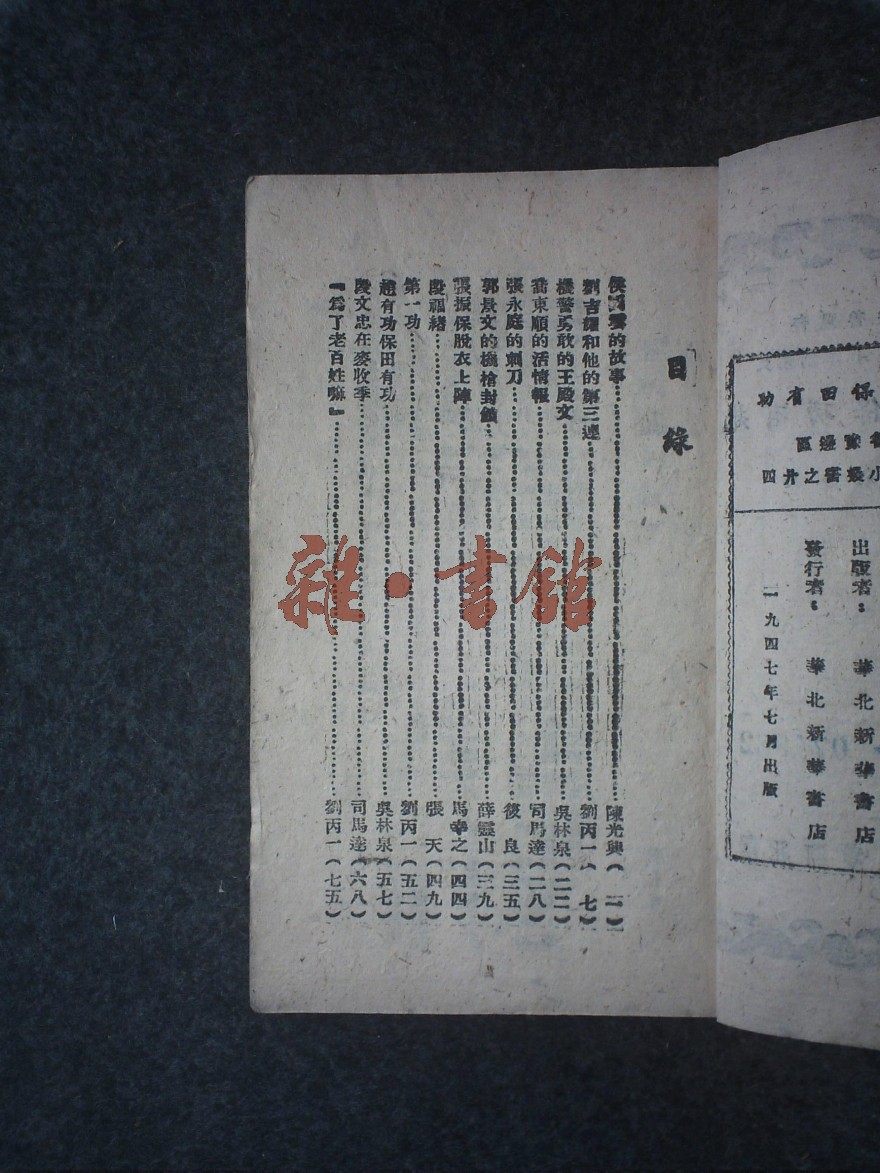 保田有功
豫邊區
小叢書之廿四
出版者：華北新華書店
發行者：華北新華書店
一九四七年七月出版
目錄
的故事 陳光興（一）
劉吉耀和他的第三連 劉丙一（七）
機警勇敢的王殿文 吳林泉（二二）
喬東順的活情報 司馬達（二八）
張永庭的刺刀 後良（三五）
郭景文的機槍封鎖 薛靈山（三九）
張振保脫衣上陣 馬奉之（四四）
段福緒 張天（四九）
第一功 劉丙一（五二）
趙有功保田有功 吳林泉（五七）
段文忠在麥收季 司馬達（六八）
『爲了老百姓嘛』 劉丙一（七五）
雜·書館